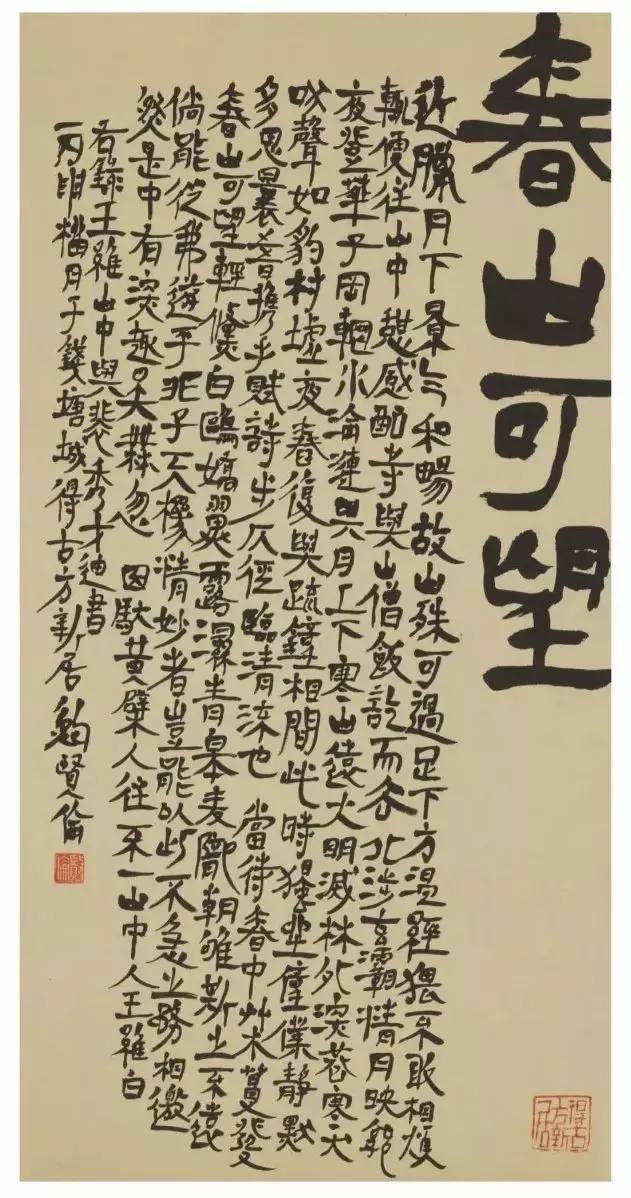 春山可望
近臘月下景气和暢故山殊可過足下方溫經猥不敢相煩
輒便往山中憩感配寺與山僧飯訖而去北涉玄灞清月映郭
夜登華子岡輞水淪漣與月上下寒山遠火明滅林外深巷寒犬
吠聲如豹村墟夜舂復與疏鐘相間此時獨坐僮僕靜默
多思曩昔攜手賦詩步仄徑臨清流也 當待春中艸木蔓發
春山可望輕鯈白鷗矯翼露濕青皋麥隴朝雊斯之不遠
倘能從我遊乎非子天機清妙者豈能以此不急之務相邀
然是中有深趣矣無忽 因馱黃檗人往不一山中人王維白
右錄王維山中與裴秀才迪書
丙申榴月于錢塘城得古方新居 鮑賢倫
得古方新居